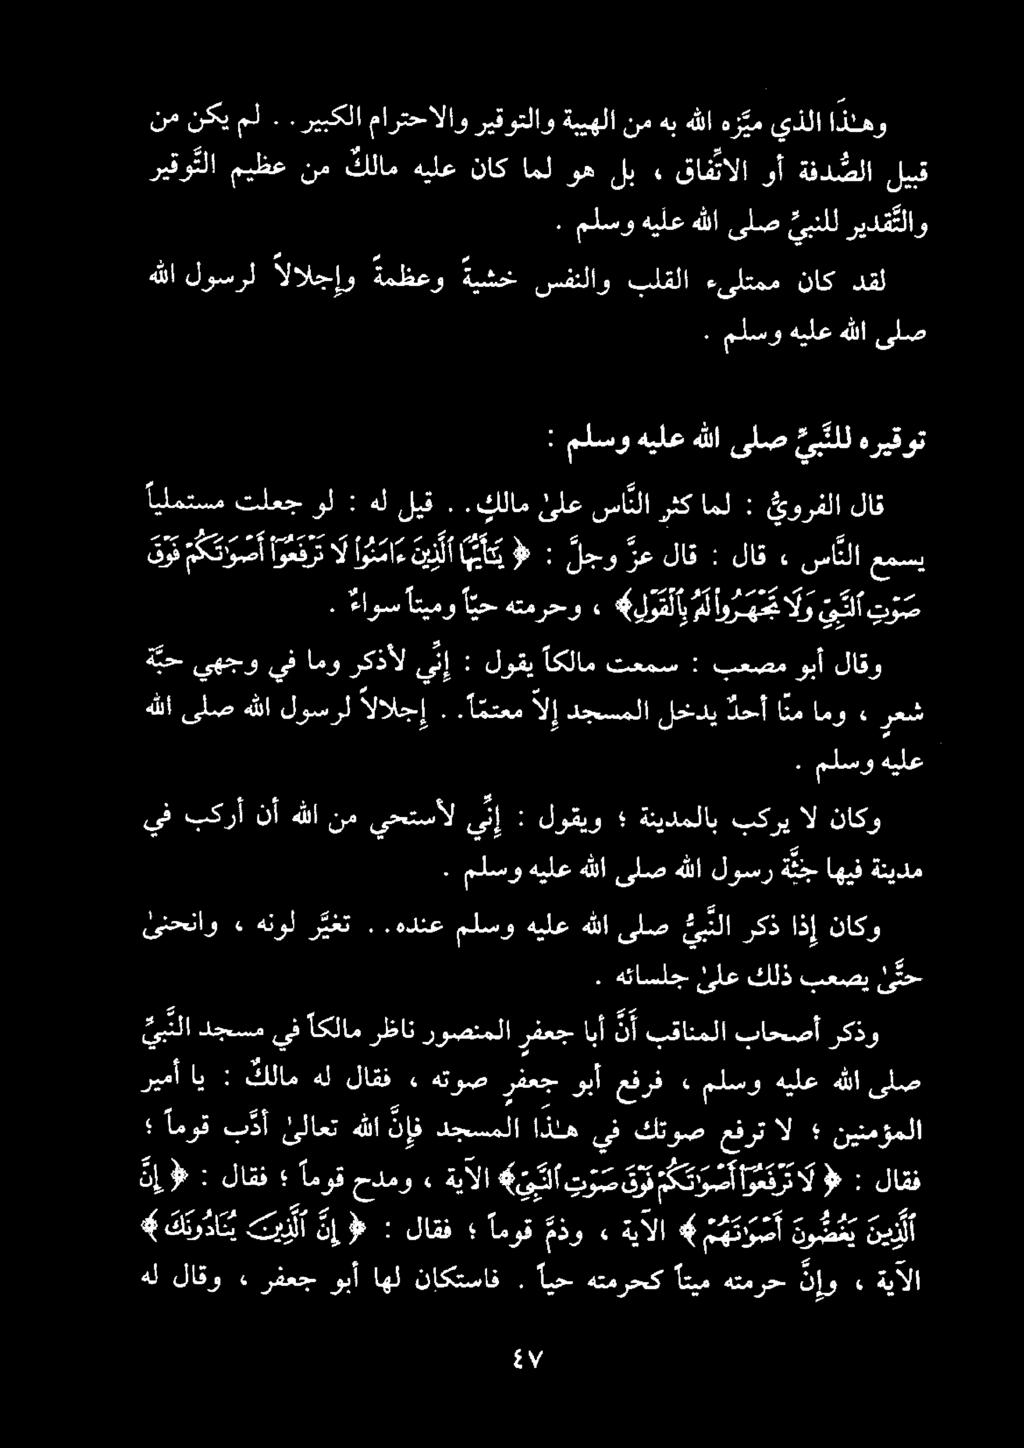 وهـٰذا الذي ميَّزه الله به من الهيبة والتوقير والاحترام الكبير . . لم يكن من
قبيل الصُّدفة أو الاتِّفاق ، بل هو لما كان عليه مالكٌ من عظيم التَّوقير
والتَّقدير للنبيِّ صلى الله عليه وسلم .
لقد كان ممتلىء القلب والنفس خشيةً وعظمةً وإجلالاً لرسول الله
صلى الله عليه وسلم .
توقيره للنَّبيِّ صلى الله عليه وسلم :
قال الفرويُّ : لما كثر النَّاس علىٰ مالكٍ . . قيل له : لو جعلت مستملياً
يسمع النَّاس ، قال : قال عزَّ وجلَّ : ﴿ يَٰٓأَيُّهَا ٱلَّذِينَ ءَامَنُوا۟ لَا تَرْفَعُوٓا۟ أَصْوَٰتَكُمْ فَوْقَ
صَوْتِ ٱلنَّبِىِّ وَلَا تَجْهَرُوا۟ لَهُۥ بِٱلْقَوْلِ﴾ ، وحرمته حيّاً وميتاً سواءٌ .
وقال أبو مصعب : سمعت مالكاً يقول : إنِّي لأذكر وما في وجهي حبَّة
شعرٍ ، وما منّا أحدٌ يدخل المسجد إلاَّ معتمّاً . . إجلالاً لرسول الله صلى الله
عليه وسلم .
وكان لا يركب بالمدينة ؛ ويقول : إنِّي لأستحي من الله أن أركب في
مدينة فيها جثَّة رسول الله صلى الله عليه وسلم .
وكان إذا ذكر النَّبيُّ صلى الله عليه وسلم عنده . . تغيَّر لونه ، وانحنىٰ
حتَّىٰ يصعب ذلك علىٰ جلسائه .
وذكر أصحاب المناقب أنَّ أبا جعفرٍ المنصور ناظر مالكاً في مسجد النَّبيِّ
صلى الله عليه وسلم ، فرفع أبو جعفرٍ صوته ، فقال له مالكٌ : يا أمير
المؤمنين ؛ لا ترفع صوتك في هـٰذا المسجد فإنَّ الله تعالىٰ أدَّب قوماً ؛
فقال : ﴿ لَا تَرْفَعُوٓا۟ أَصْوَٰتَكُمْ فَوْقَ صَوْتِ ٱلنَّبِىِّ﴾ الآية ، ومدح قوماً ؛ فقال : ﴿ إِنَّ
ٱلَّذِينَ يَغُضُّونَ أَصْوَٰتَهُمْ ﴾ الآية ، وذمَّ قوماً ؛ فقال : ﴿ إِنَّ ٱلَّذِينَ يُنَادُونَكَ ﴾
الآية ، وإنَّ حرمته ميتاً كحرمته حياً . فاستكان لها أبو جعفر ، وقال له
٤٧